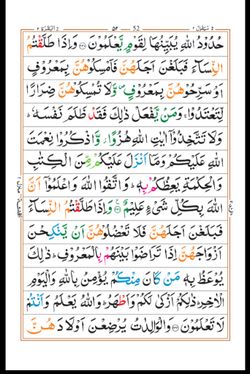 حُدُوْدُ اللّٰهِ يُبَيِّنُهَا لِقَوْمٍ يَّعْلَمُوْنَ ۝ وَاِذَا طَلَّقْتُمُ
النِّسَآءَ فَبَلَغْنَ اَجَلَهُنَّ فَاَمْسِكُوْهُنَّ بِمَعْرُوْفٍ
اَوْ سَرِّحُوْهُنَّ بِمَعْرُوْفٍ ۪ وَّلَا تُمْسِكُوْهُنَّ ضِرَارًا
لِّتَعْتَدُوْا ۚ وَمَنْ يَّفْعَلْ ذٰلِكَ فَقَدْ ظَلَمَ نَفْسَهٗ ؕ
وَلَا تَتَّخِذُوْۤا اٰيٰتِ اللّٰهِ هُزُوًا ؗ وَّاذْكُرُوْا نِعْمَتَ
اللّٰهِ عَلَيْكُمْ وَمَاۤ اَنْزَلَ عَلَيْكُمْ مِّنَ الْكِتٰبِ
وَالْحِكْمَةِ يَعِظُكُمْ بِهٖ ؕ وَاتَّقُوا اللّٰهَ وَاعْلَمُوْۤا اَنَّ
اللّٰهَ بِكُلِّ شَیْءٍ عَلِيْمٌ ۝ وَاِذَا طَلَّقْتُمُ النِّسَآءَ
فَبَلَغْنَ اَجَلَهُنَّ فَلَا تَعْضُلُوْهُنَّ اَنْ يَّنْكِحْنَ
اَزْوَاجَهُنَّ اِذَا تَرَاضَوْا بَيْنَهُمْ بِالْمَعْرُوْفِ ؕ ذٰلِكَ
يُوْعَظُ بِهٖ مَنْ كَانَ مِنْكُمْ يُؤْمِنُ بِاللّٰهِ وَالْيَوْمِ
الْاٰخِرِ ؕ ذٰلِكُمْ اَزْكٰى لَكُمْ وَاَطْهَرُ ؕ وَاللّٰهُ يَعْلَمُ وَاَنْتُمْ
لَا تَعْلَمُوْنَ ۝ وَالْوَالِدٰتُ يُرْضِعْنَ اَوْلَادَهُنَّ